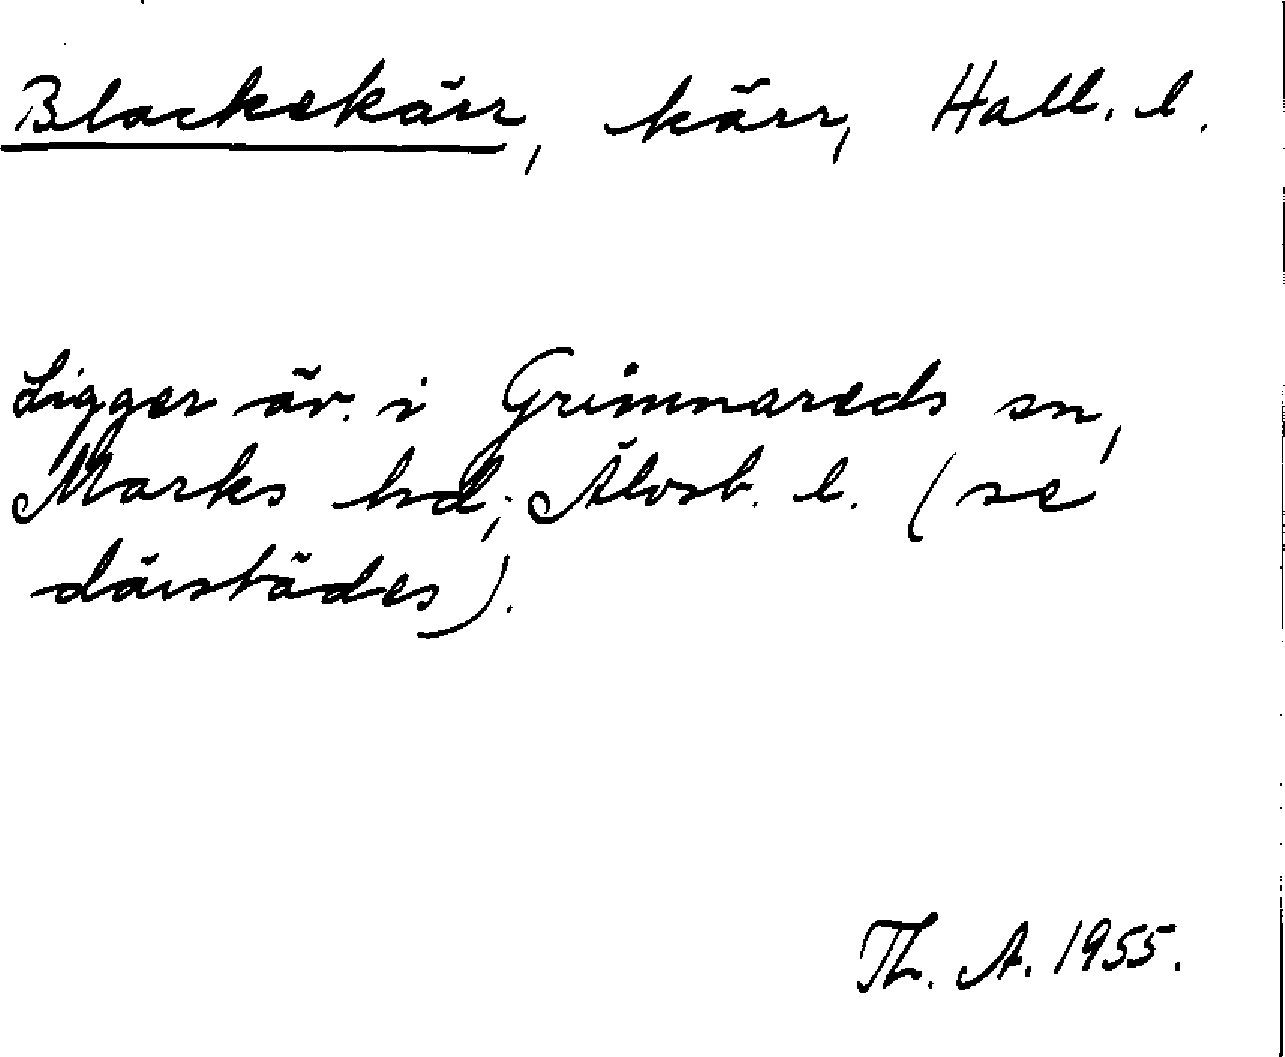 Blackekärr, kärr, Hall. l.
Ligger äv. i Grimmareds sn,
Marks hd, Älvsb. l. (se
därstädes).
Th. A. 1955.